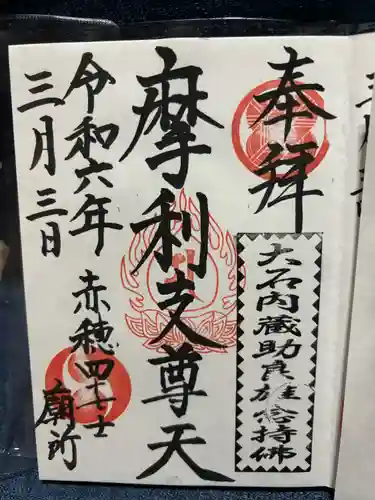 奉拝
大石内蔵助良雄念持佛
摩利支尊天
令和六年
三月三日
赤穂四十七士
廟所